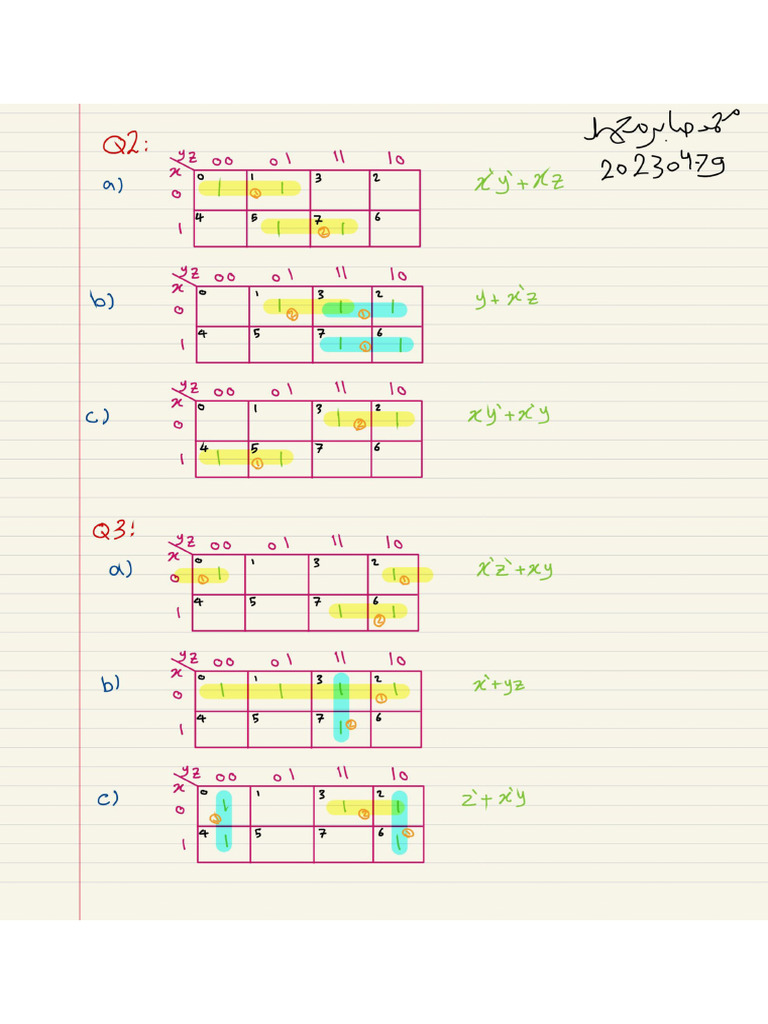 Q2:
20230479
a)
yz 00 01 11 10
x
0 0 1 1 1 3 2
1 4 5 1 7 1 6
x`y` + xz
b)
yz 00 01 11 10
x
0 0 1 1 3 1 2 1
1 4 5 7 1 6 1
y + x`z
c)
yz 00 01 11 10
x
0 0 1 3 1 2 1
1 4 1 5 1 7 6
xy` + x`y
Q3:
a)
yz 00 01 11 10
x
0 0 1 1 3 2 1
1 4 5 7 1 6 1
x`z` + xy
b)
yz 00 01 11 10
x
0 0 1 1 1 3 1 2 1
1 4 5 7 1 6
x` + yz
c)
yz 00 01 11 10
x
0 0 1 1 3 1 2 1
1 4 1 5 7 6 1
z` + x`y